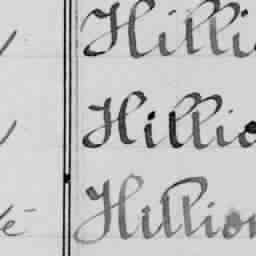 Hilli
Hillio
Hillion